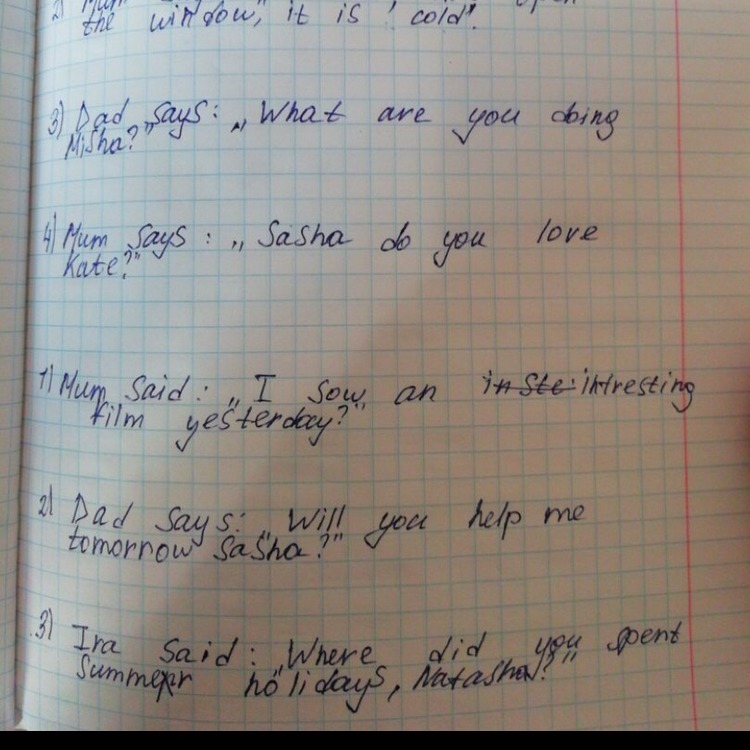 2) Mum
the window, it is cold".
3) Dad says: „What are you doing
Misha?"
4) Mum says: „Sasha do you love
Kate?"
1) Mum said: „I sow an intresting
film yesterday?"
2) Dad says: „Will you help me
tomorrow Sasha?"
3) Ira said: „Where did you spent
Summer holidays, Natasha?"